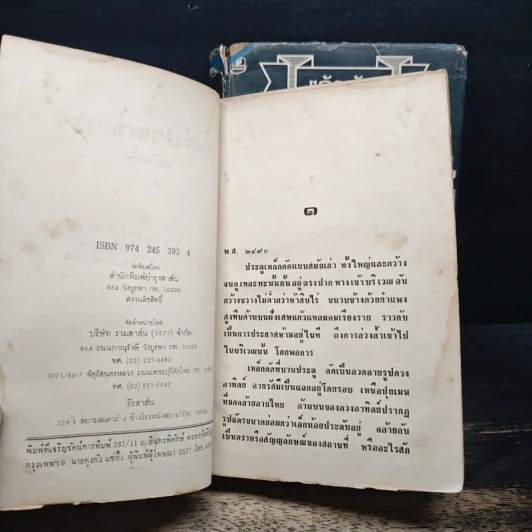 ISBN 974 245 393 4
จัดพิมพ์โดย
สำนักพิมพ์บำรุงสาส์น
864 วังบูรพา กท. 10200
สงวนลิขสิทธิ์
จัดจำหน่ายโดย
บริษัท รวมสาส์น (1977) จำกัด
864 ถนนภาณุรังษี วังบูรพา กท. 10200
ทศ. (02) 221-6483
1093/86-7 จัตุรัสนครหลวง ถนนเพชรบุรีตัดใหม่ กท. 10400
ทศ. (02) 251-5642
ธีระสาส์น
326/8 สยามสแควร์ 4 ข้างโรงหนังสยาม กท. 10500
พิมพ์ที่เจริญรัตน์การพิมพ์ 237/11 ถ.อินทรพิทักษ์
กรุงเทพฯ 6 นายกุงฮัง แซ่อึ้ง ผู้พิมพ์ผู้โฆษณา 2527
๑
พ.ศ. ๒๔๙๐
ประตูเหล็กดัดแบบสมัยเก่า ทั้งใหญ่และกว้าง
จนดูเทอะทะนั้นตั้นอยู่ตรงปากทางเข้าบริเวณ อัน
กว้างขวางไม่ต่ำกว่าห้าสิบไร่ ขนาบข้างด้วยกำแพง
สูงทึบด้านบนฝังเศษแก้วแหลมคมเรียงราย ราวกับ
เป็นการประกาศห้ามอยู่ในที ถึงการล่วงล้ำเข้าไป
ในบริเวณนั้น โดยพลการ
เหล็กดัดที่บานประตู ดัดเป็นลวดลายรูปดวง
อาทิตย์ ฉายรัศมีเป็นแฉกอยู่โดยรอบ เหนือปุยเมฆ
หมดคล้ายลายไทย ด้านบนของดวงอาทิตย์ปรากฏ
รูปฉัตรขนาดย่อมกว่าเล็กน้อยประดับอยู่ คล้ายกับ
เป็นตราหรือสัญญลักษณ์ของสถานที่ หรืออะไรสัก